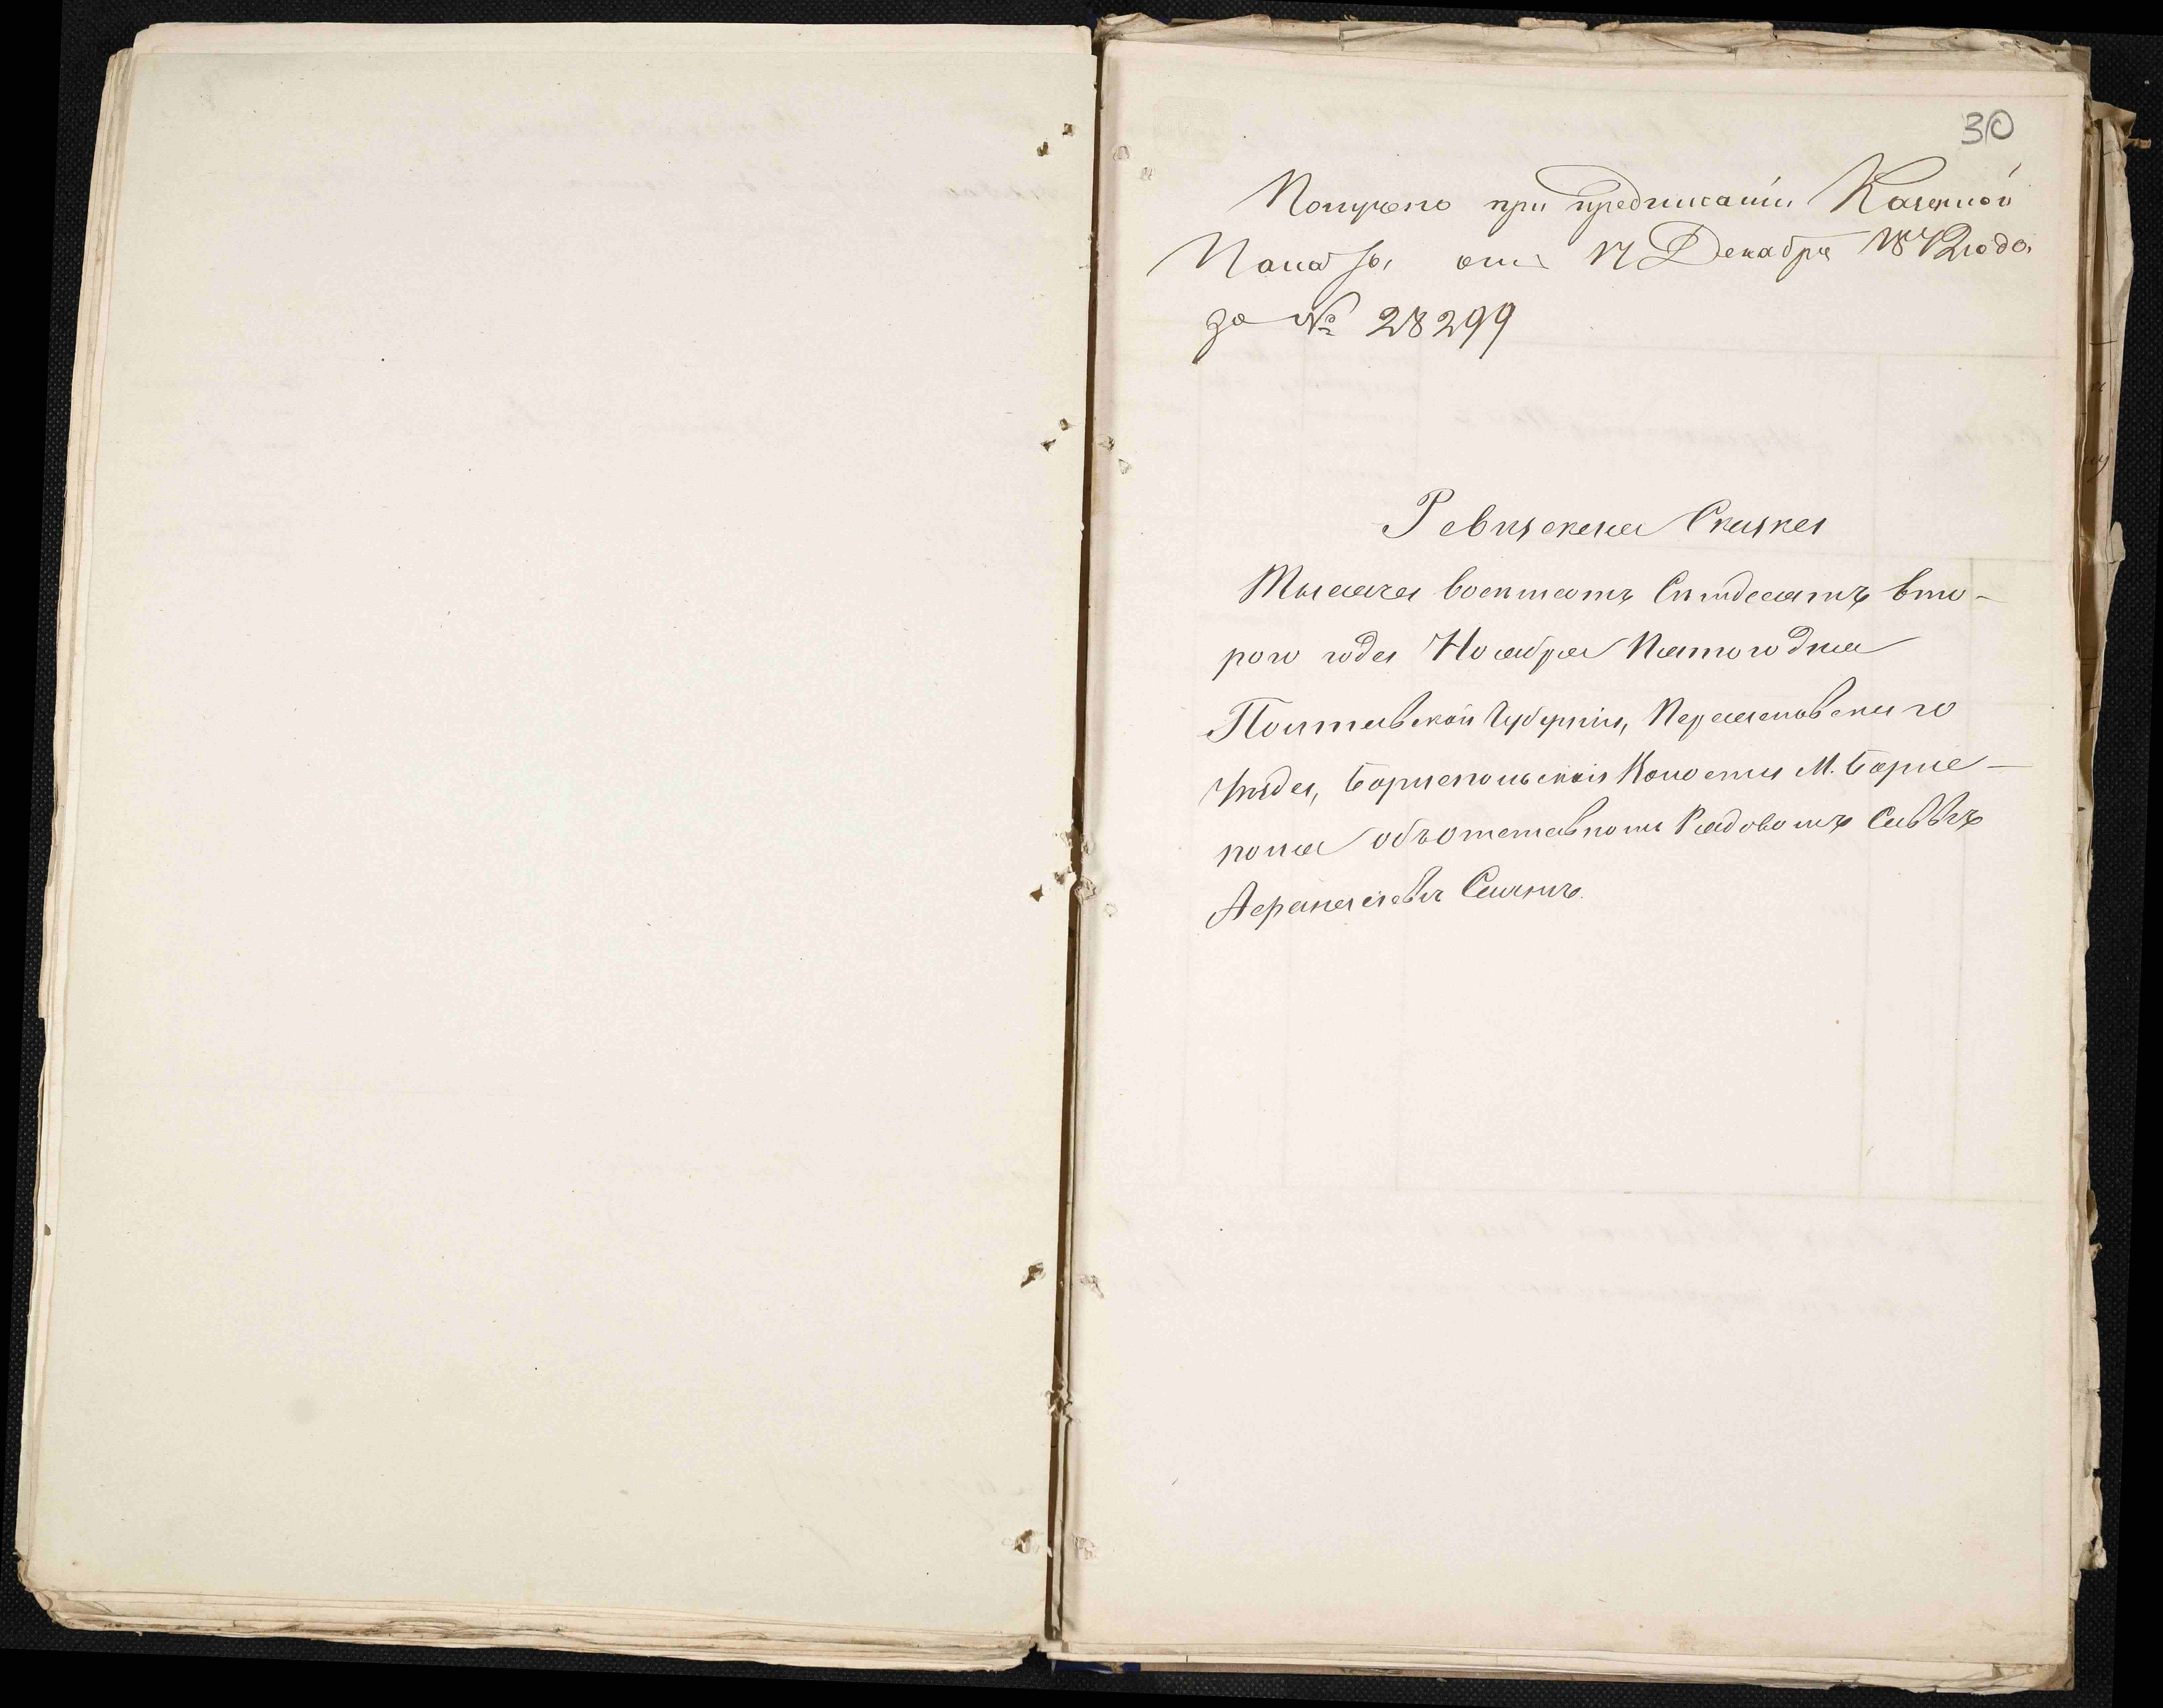 30
Получено при предписаніи Казенной
Палаты отъ 17 Декабря 1872 года
за № 28299
Ревизская Сказка
Тысяча восемьсотъ Семдесятъ вто-
рого года Ноября Пятого дня
Полтавской Губерніи, Переяславского
Уѣзда, Бориспольской Волости М. Борис-
поля объ отставномъ Рядовомъ Саввѣ